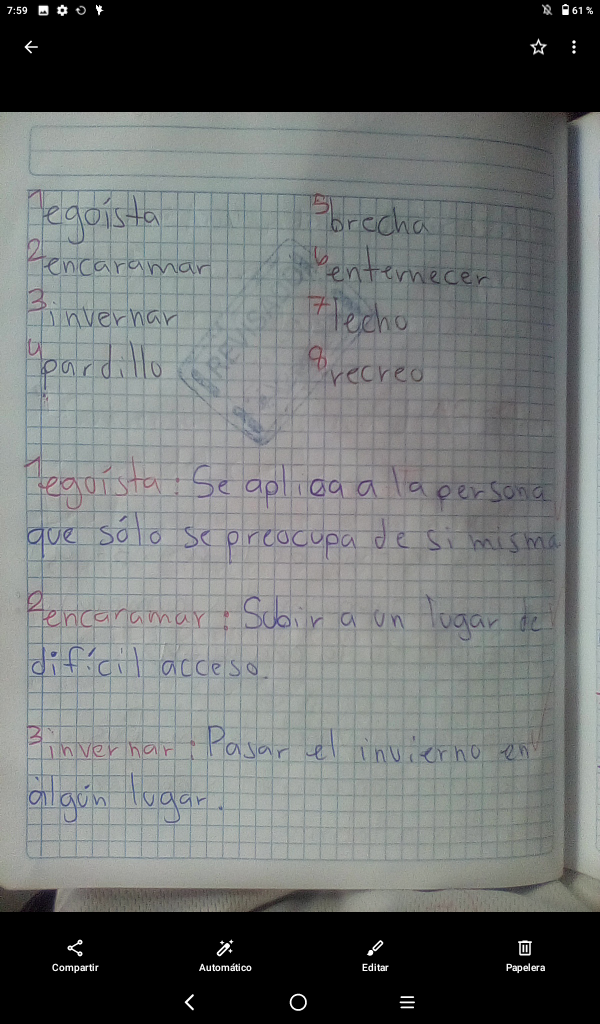 7:59
61 %
1 egoísta
2 encaramar
3 invernar
4 pardillo
5 brecha
6 enternecer
7 lecho
8 recreo
1 egoísta: Se aplica a la persona
que sólo se preocupa de si misma
2 encaramar: Subir a un lugar de
difícil acceso.
3 invernar: Pasar el invierno en
algún lugar.
Compartir
Automático
Editar
Papelera